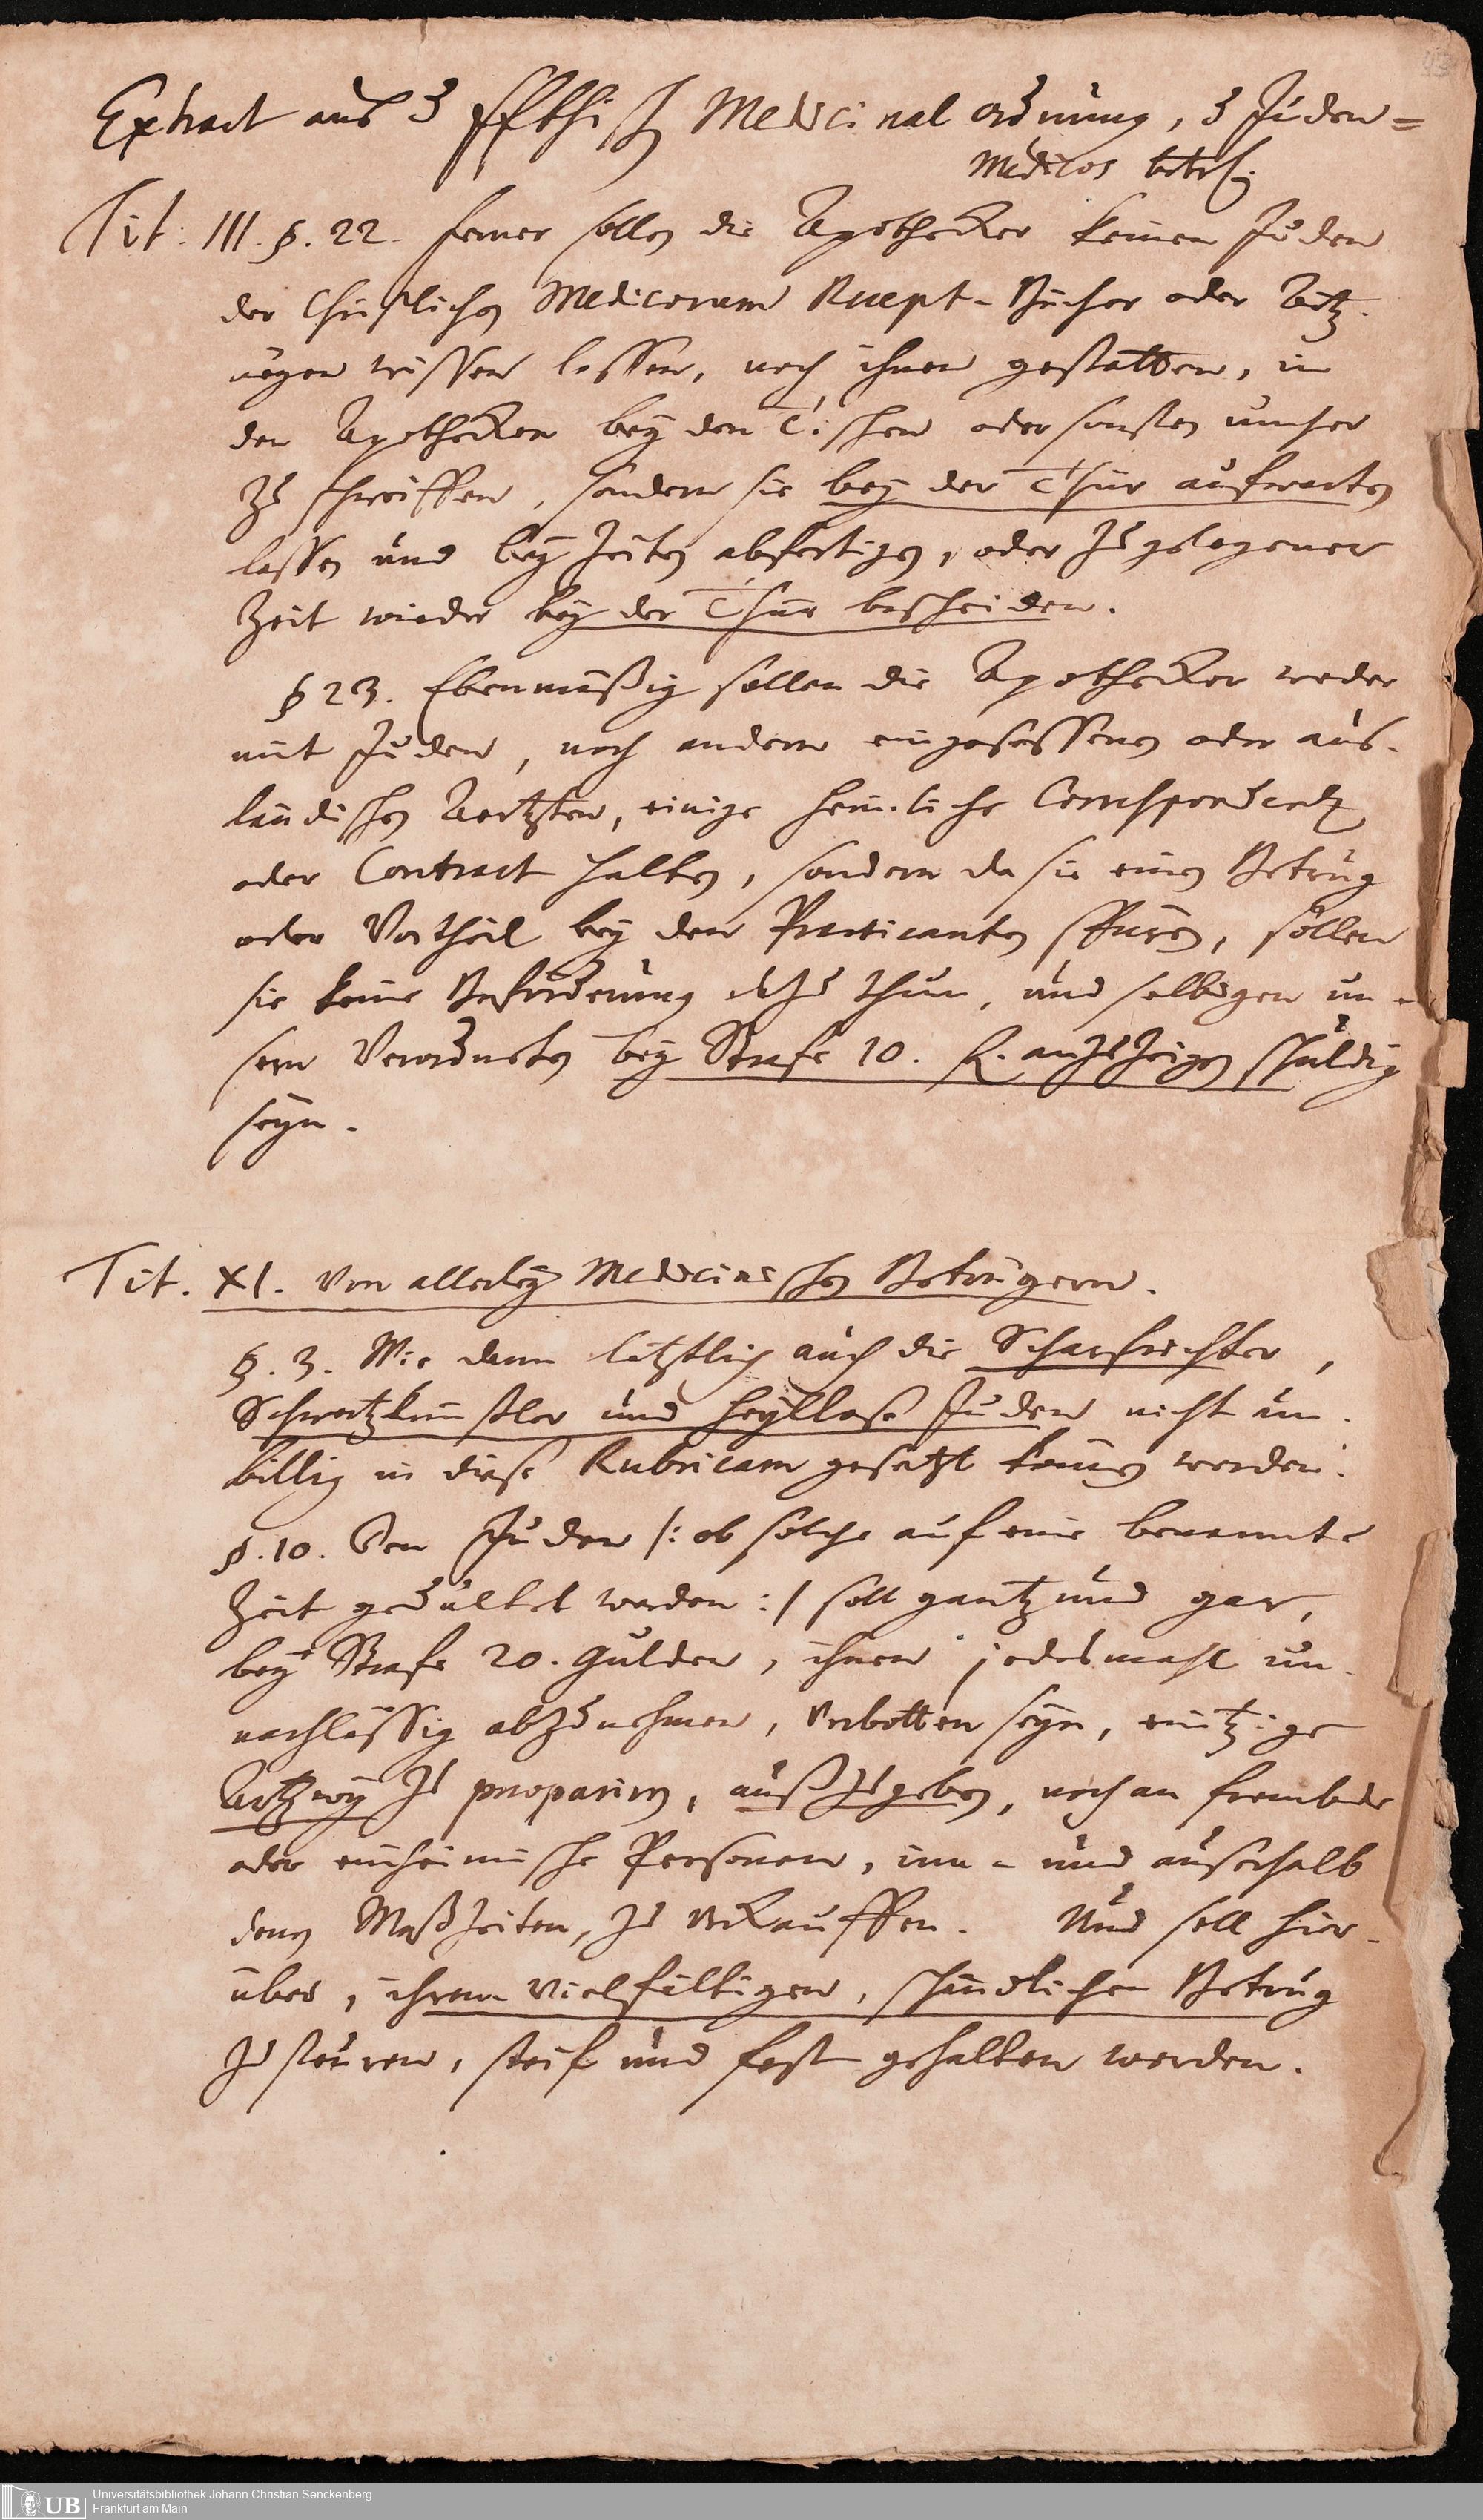 43
Extract aus d. ffthisch Medicinal ordnung, d. Juden=
Medicos betrf.
Tit: III. §. 22. ferner sollen die Apothecker keinen Juden
der Christlichen Medicorum Recept-Bücher oder Artz-
neyen wissen lassen, noch ihnen gestatten, in
den Apothecken bey den Tischen oder sonsten umher
zu schweiffen, sondern sie bey der Thür aufwarten
lassen und bey Zeiten abfertigen, oder zu gelegener
Zeit wieder bey der Thür bescheiden.
§ 23. Ebenmäßig sollen die Apothecker weder
mit Juden, noch andern eingesessenen oder aus-
ländischen Aertzten, einige heimliche Correspondentz
oder Contract halten, sondern da sie einen Betrug
oder Vortheil bey den Practicanten spüren, sollen
sie keine Beförderung dazu thun, und selbigen un-
sern Verordneten bey Strafe 10. fl. anzuzeigen schuldig
seyn.
Tit. XI. Von allerley Medicinischen Betrügern.
§. 3. Wie dann letztlich auch die Scharfrichter,
Schwartzkünstler und heyllose Juden nicht un-
billig in diese Rubricam gesetzt können werden.
§. 10. Den Juden /: ob solche auf eine benannte
Zeit gedultet werden :/ soll gantz und gar,
bey Strafe 20. Gulden, ihnen jedesmahl un-
nachlässig abzunehmen, verbotten seyn, eintzige
Artzney zu praepariren, außzugeben, noch an frembde
oder einheimische Personen, inn- und auserhalb
denen Meßzeiten, zu verkauffen. Und soll hier-
über, ihrem vielfältigen, schändlichen Betrug
zu steuren, steif und fest gehalten werden.
UB
Universitätsbibliothek Johann Christian Senckenberg
Frankfurt am Main